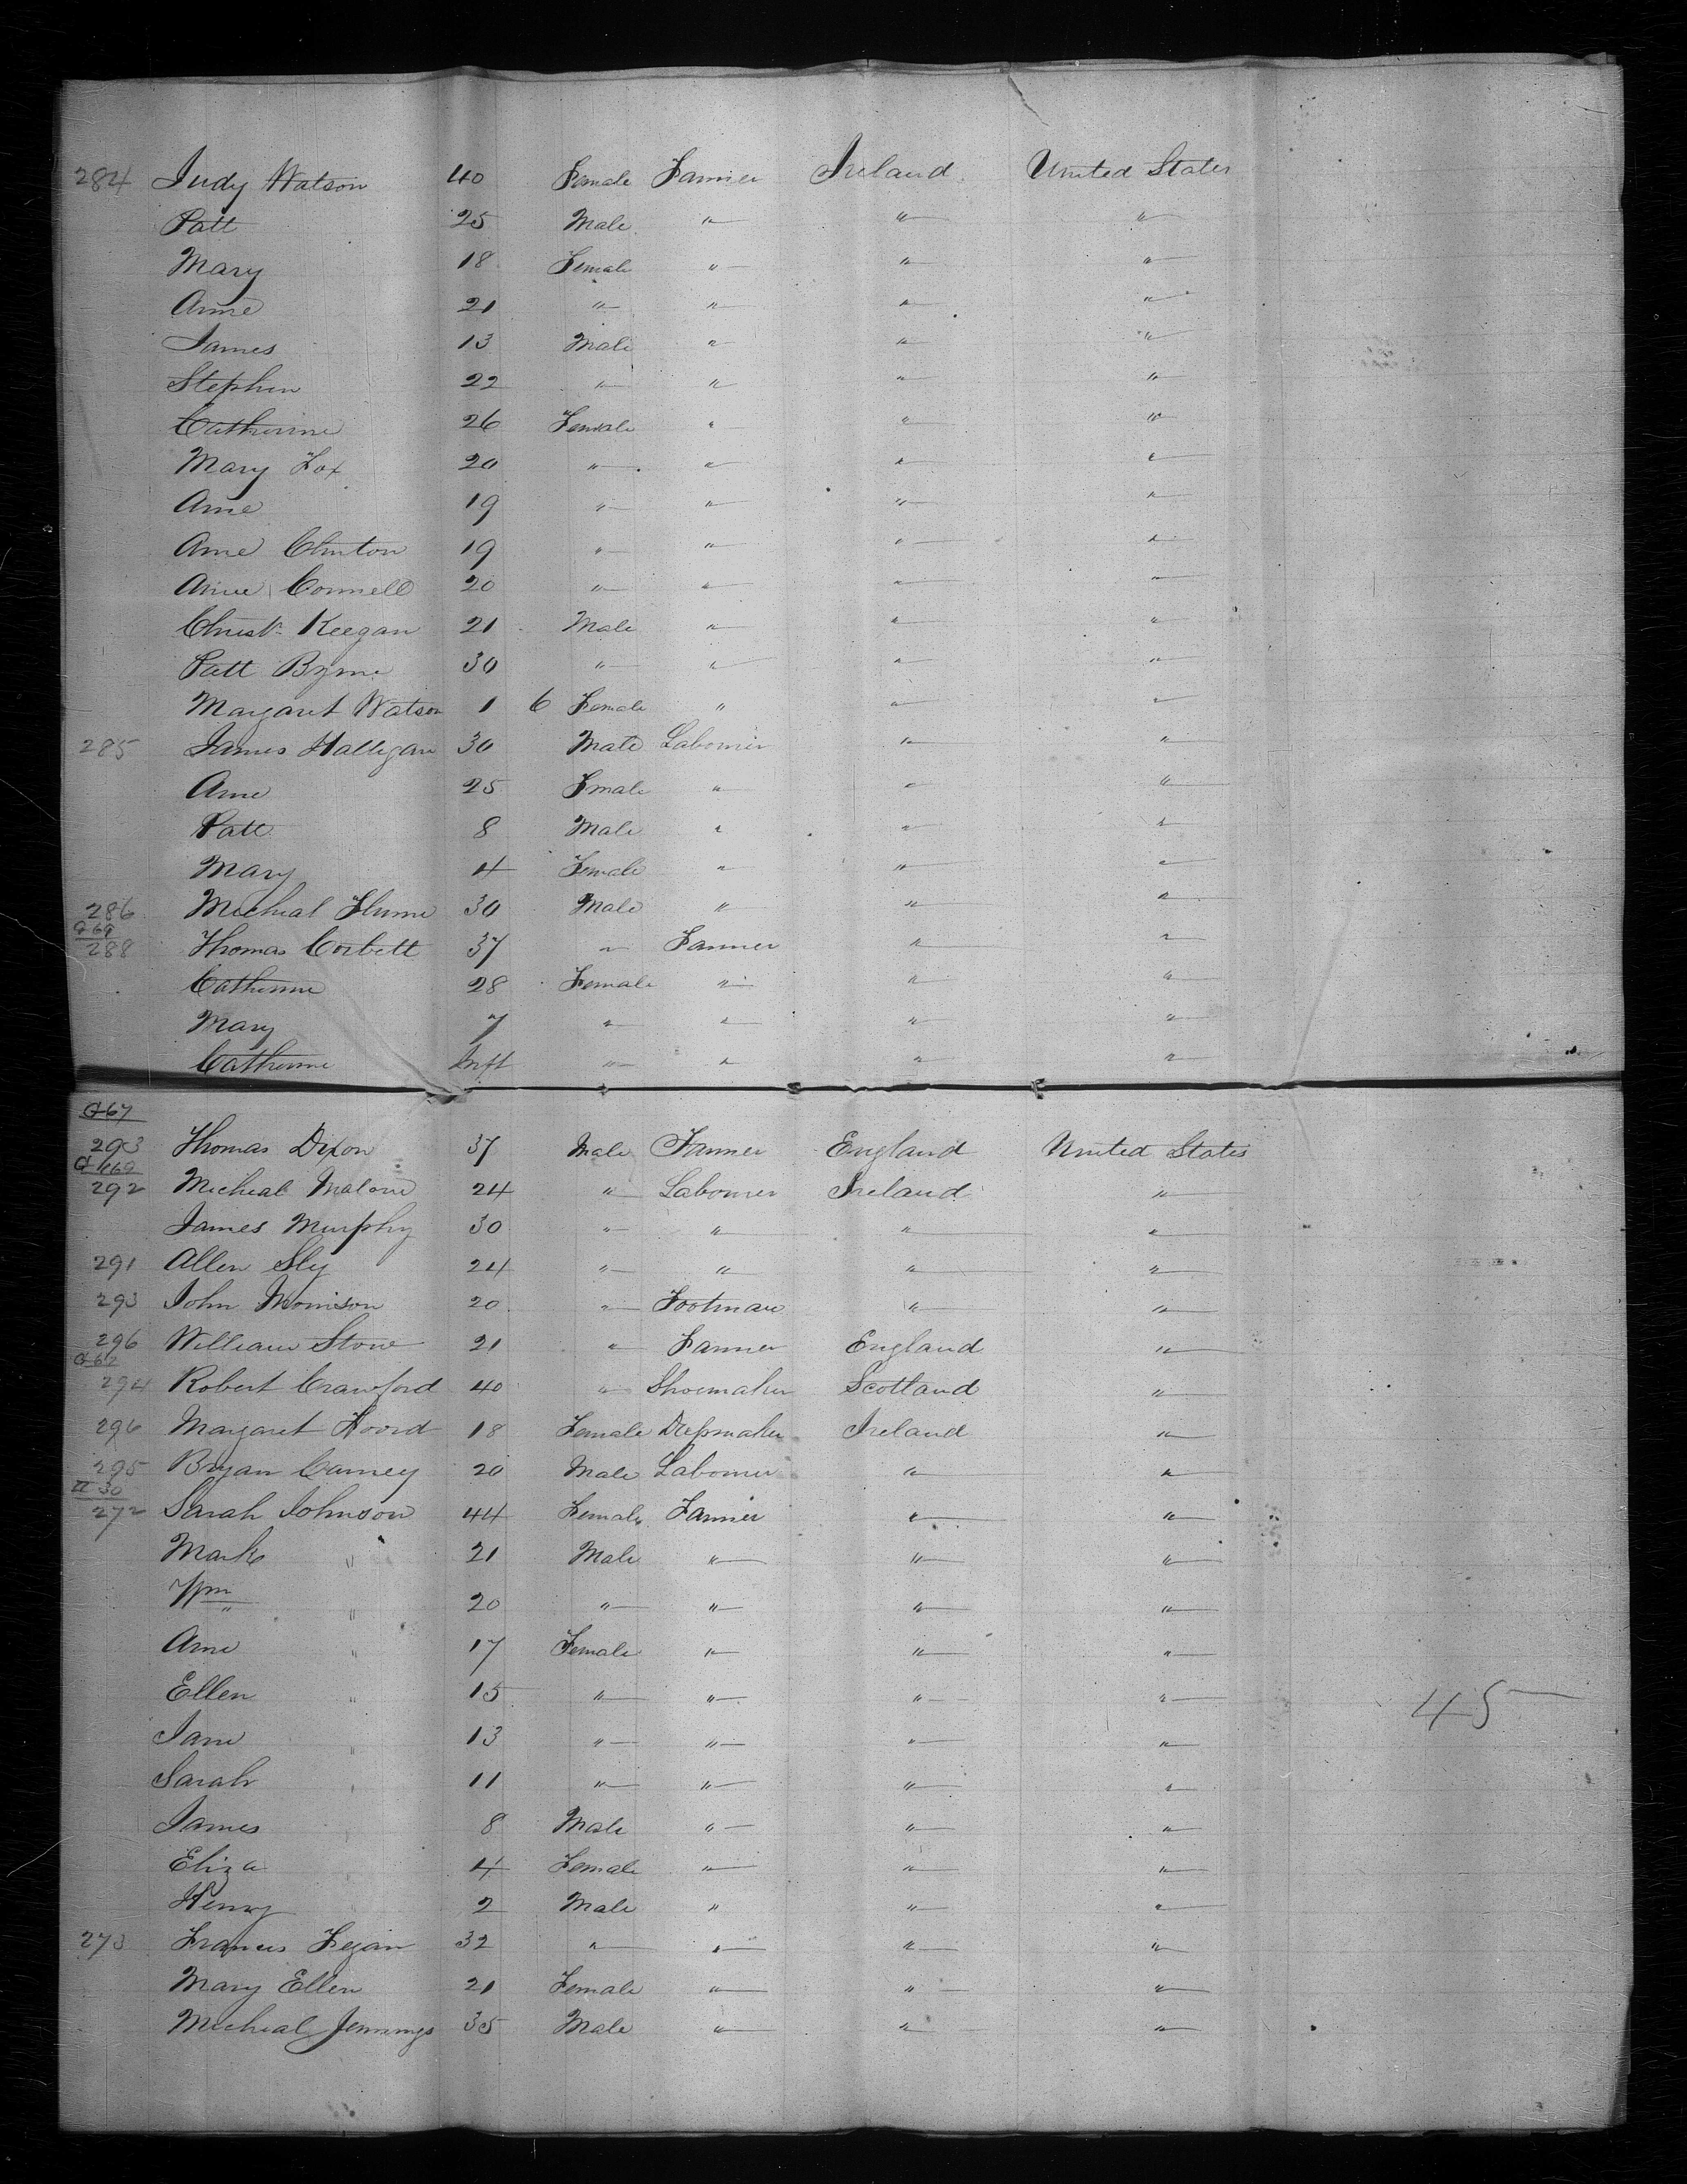 284 Judy Watson 40 Female Farmer Ireland United States
Patt 25 Male " " "
Mary 18 Female " " "
Anne 21 " " " "
James 13 Male " " "
Stephen 22 " " " "
Catherine 26 Female " " "
Mary Fox 20 " " " "
Anne 19 " " " "
Anne Clinton 19 " " " "
Anne Connell 20 " " " "
Christr Keegan 21 Male " " "
Patt Byrne 30 " " " "
Margaret Watson 1 6 Female " " "
285 James Halligan 30 Male Labourer " "
Anne 25 Female " " "
Patt 8 Male " " "
Mary 4 Female " " "
286 Micheal Flume 30 Male " " "
G 69
288 Thomas Corbett 37 " Farmer " "
Catherine 28 Female " " "
Mary 7 " " " "
Catherine Inft " " " "
G 67
293 Thomas Dixon 37 Male Farmer England United States
292 Micheal Malone 24 " Labourer Ireland "
James Murphy 30 " " " "
291 Allen Sly 24 " " " "
293 John Morrison 20 " Footman " "
296 William Stone 21 " Farmer England "
G 62
294 Robert Crawford 40 " Shoemaker Scotland "
296 Margaret Hoord 18 Female Dressmaker Ireland "
295 Bryan Carney 20 Male Labourer " "
II 30
272 Sarah Johnson 44 Female Farmer " "
Mark " 21 Male " " "
Wm " 20 " " " "
Anne " 17 Female " " "
Ellen " 15 " " " "
Jane " 13 " " " "
Sarah " 11 " " " "
James 8 Male " " "
Eliza 4 Female " " "
Henry 2 Male " " "
273 Francis Fegan 32 " " " "
Mary Ellen 21 Female " " "
Micheal Jennings 35 Male " " "
45